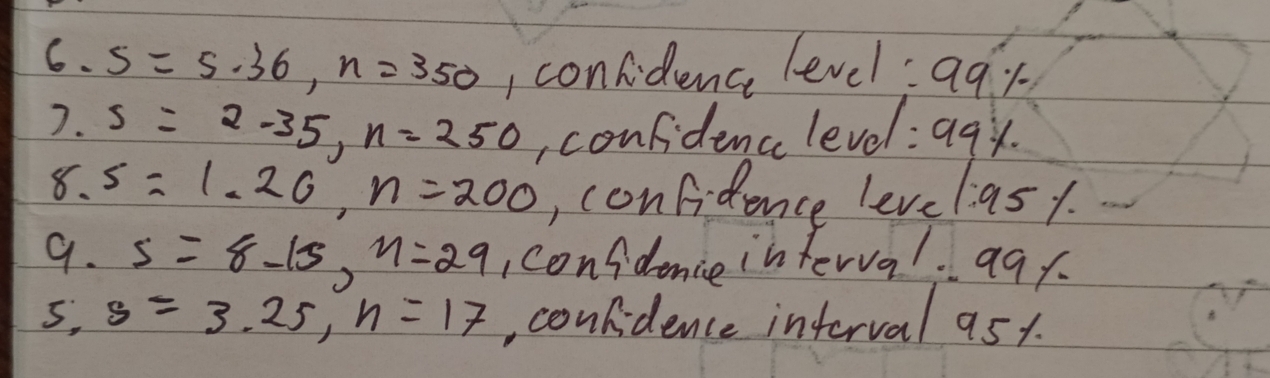 6. s = 5.36, n = 350, confidence level : 99%
7. s = 2.35, n = 250, confidence level : 99%.
8. s = 1.20, n = 200, confidence level : 95%.
9. s = 8.15, n = 29, confidence interval : 99%
5. s = 3.25, n = 17, confidence interval 95%.